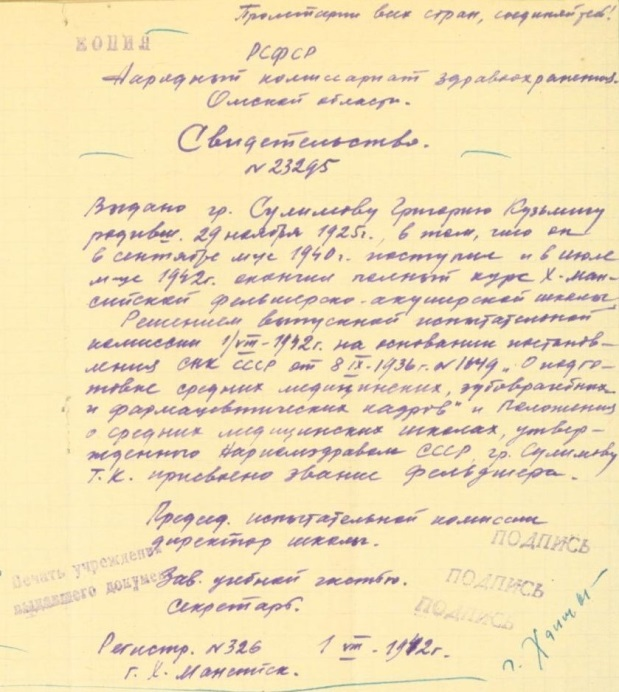 Пролетарии всех стран, соединяйтесь!
КОПИЯ
РСФСР
Народный комиссариат здравоохранения.
Омской области.
Свидетельство.
№ 23295
Выдано гр. Сулимову Григорию Кузьмичу
родивш. 29 ноября 1925г., в том, что он
в сентябре м-це 1940г. поступил и в июле
м-це 1942г. окончил полный курс Х-Ман-
сийской фельшерско-акушерской школы
Решением выпускной испытательной
комиссии 1/VIII-1942г. на основании постанов-
ления СНК СССР от 8 IX-1936г. № 1649 „О подго-
товке средних медицинских, зубоврачебных
и фармацевтических кадров" и Положения
о средних медицинских школах, утвер-
жденного Наркомздравом СССР, гр. Сулимову
Г. К. присвоено звание фельдшера.
Председ. испытательной комиссии
директор школы.
ПОДПИСЬ
Печать учреждения
выдавшего документ
Зав. учебной частью.
ПОДПИСЬ
Секретарь.
ПОДПИСЬ
Регистр. № 326 1 VIII - 1942г.
г. Х. Мансийск.